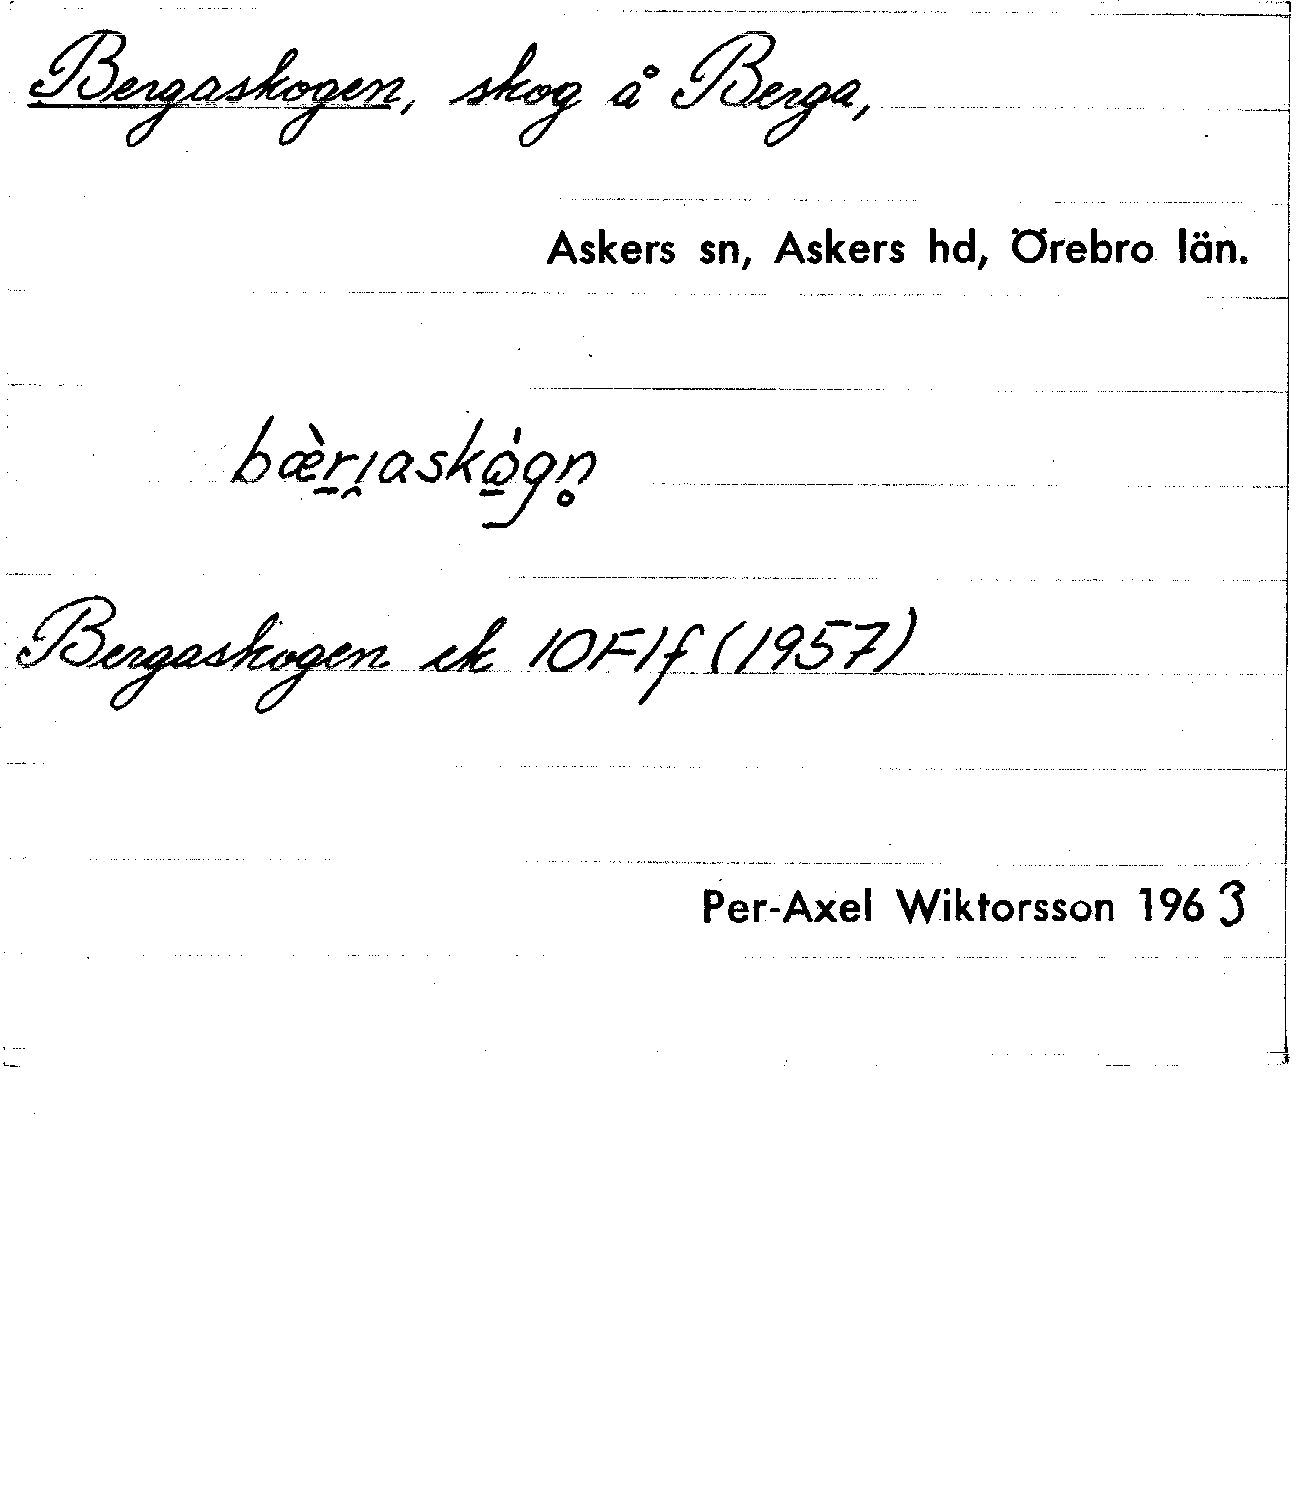 Bergaskogen, skog å Berga,
Askers sn, Askers hd, Örebro län.
bæ̀r̠ı̯askὼ̠gn̥
Bergaskogen ek 10F1f (1957)
Per-Axel Wiktorsson 1963